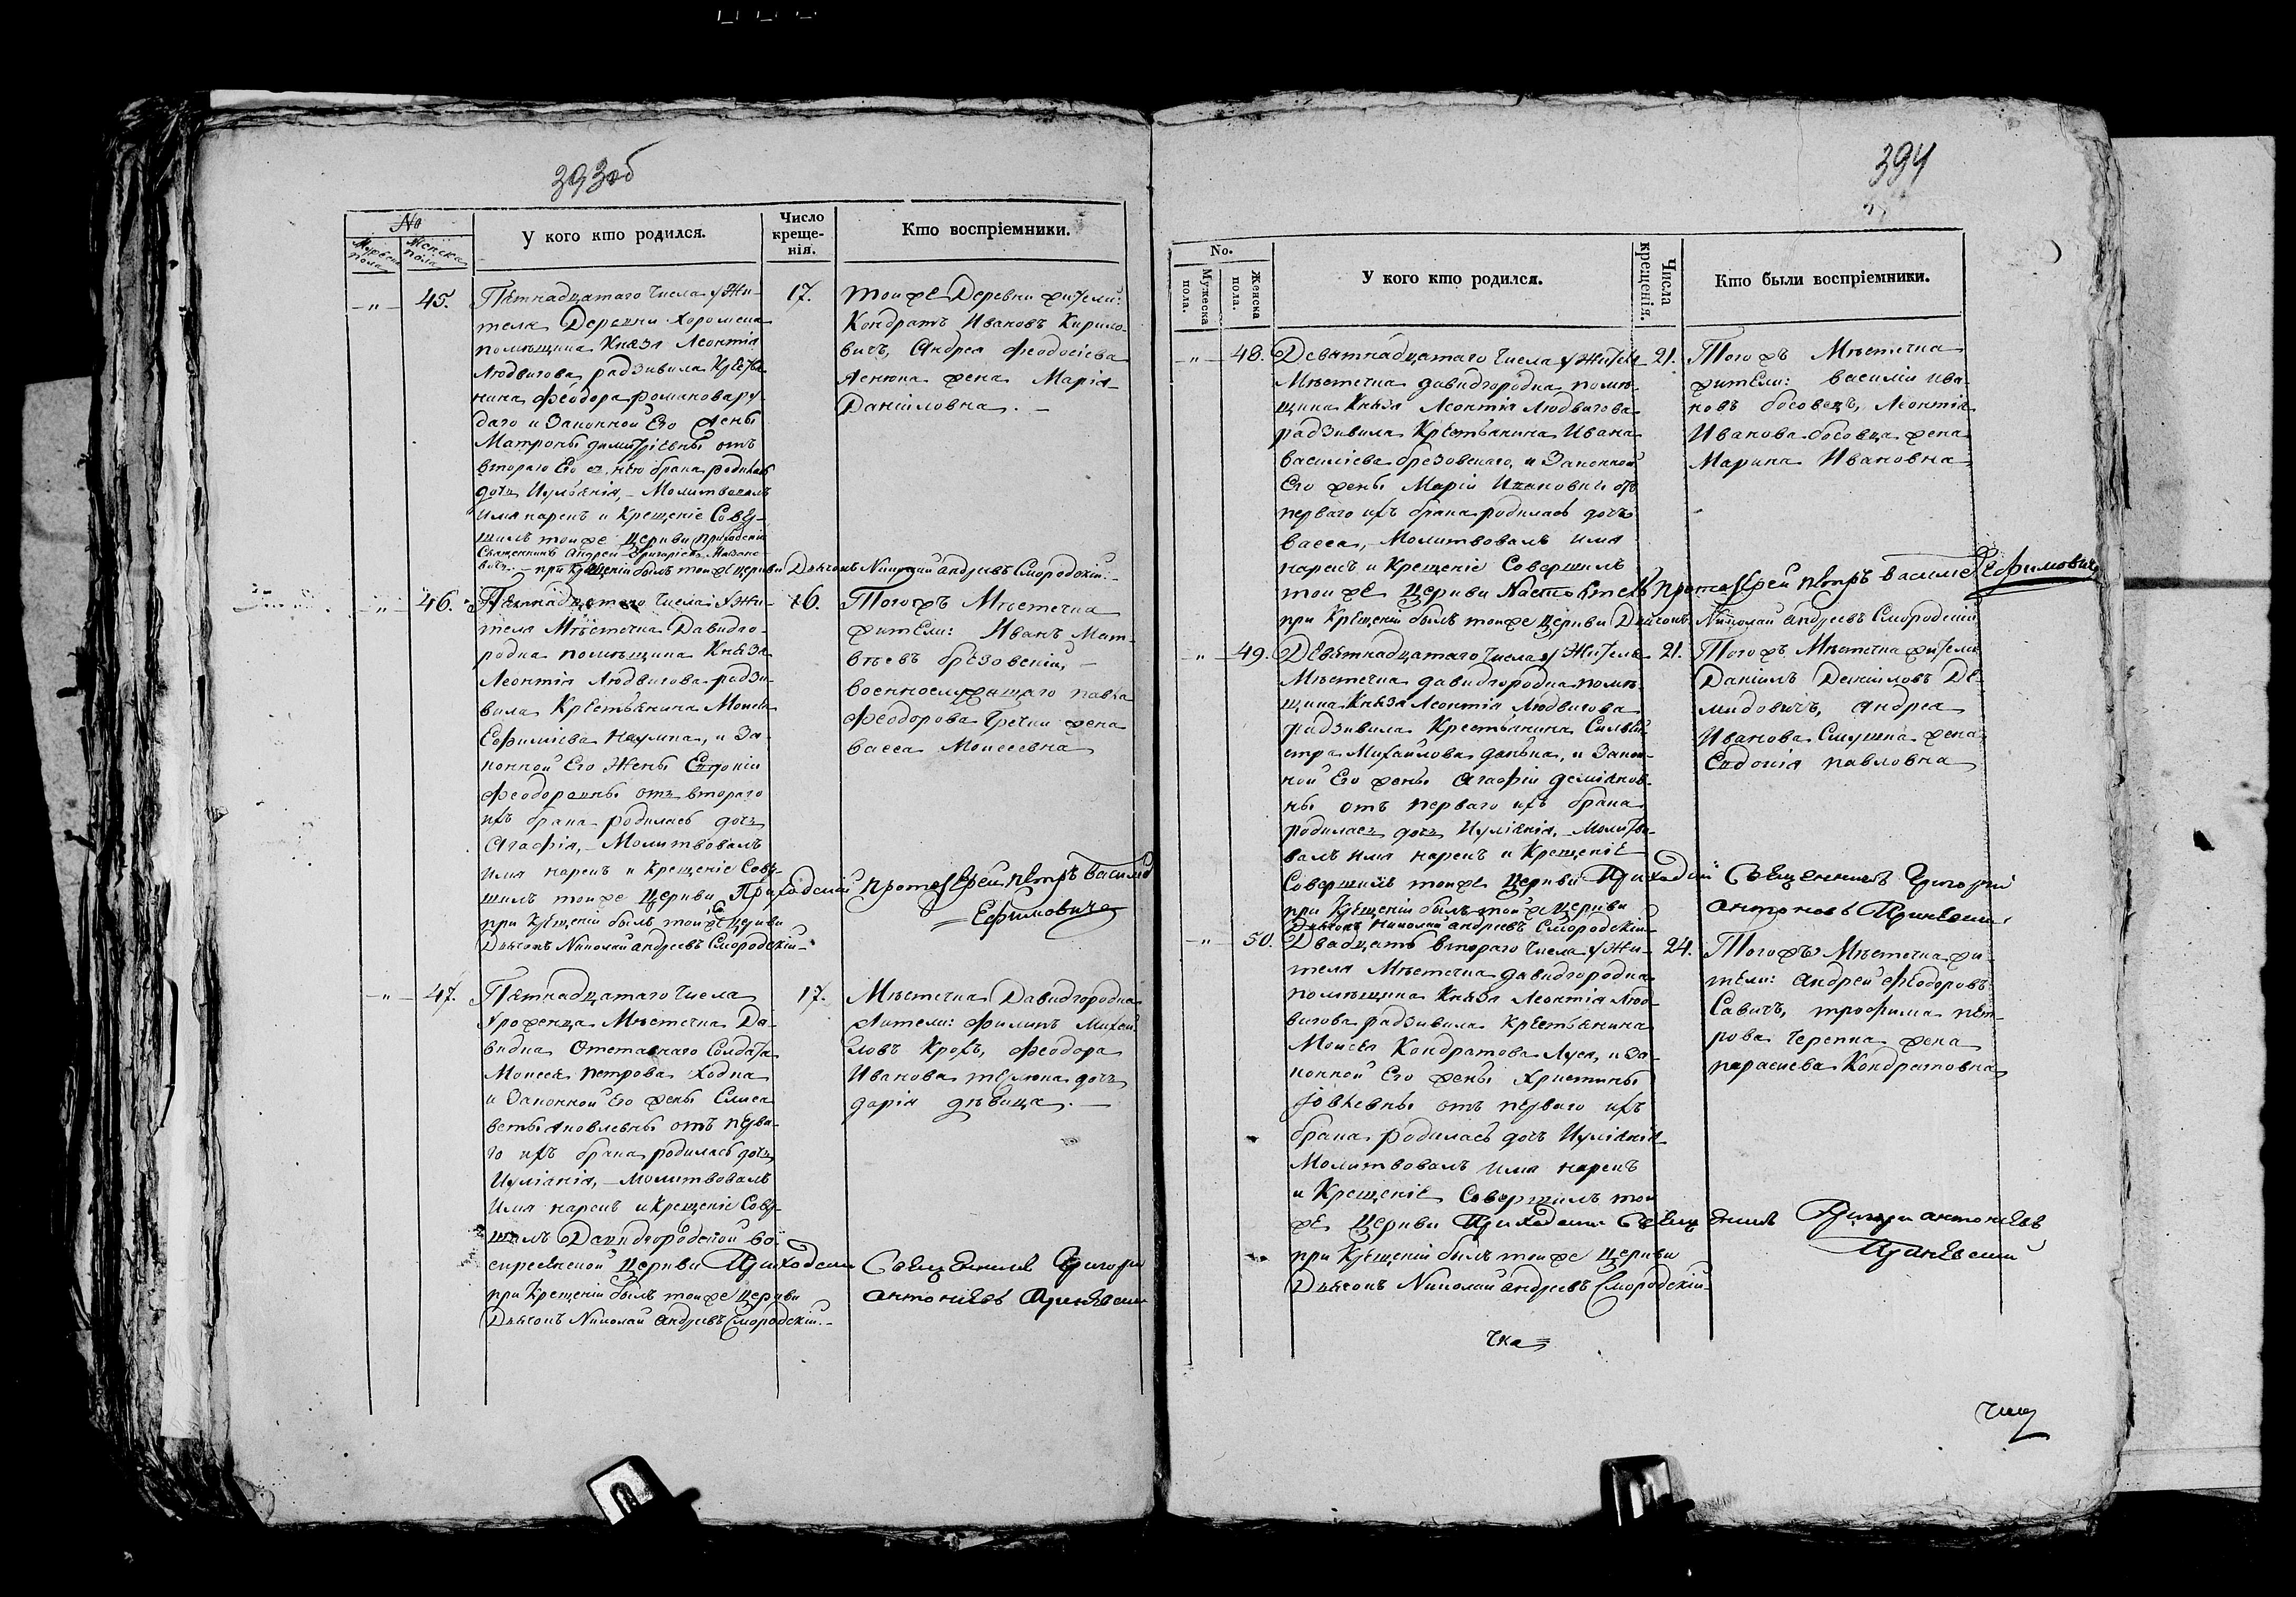 393об
No
Мужеска пола
Женска пола
У кого кто родился.
Число креще-
нія.
Кто воспріемники.
— „ — 45.
Пятнадцатаго Числа у Жи-
теля Деревни Хоромска
помѣщика Князя Леонтія
Людвигова радзивила Кресть-
янина Феодора романова ру-
даго и Законной Его жены
Матроны димитріевны отъ
втораго Его съ нею брака родилась
дочь Иуліанія, – Молитвовалъ
имя нарекъ и Крещеніе Совер-
шилъ тоиже Церкви приходскій
Священникъ Андрей Григоріевъ
при Крещеніи былъ тоиже Церкви Дьячокъ Николай андреевъ Смородскій. –
17.
тоиже Деревни жители:
Кондратъ Ивановъ Кирило-
вичъ, Андрея Феодосіева
жена Марія
Даніиловна. —
— „ — 46.
Пятнадцатаго Числа у Жи-
теля Мѣстечка Давидго-
родка помѣщика Князя
Леонтія Людвигова радзи-
вила Крестьянина Моисея
Ефиміева Наумика, и За-
конной Его Жены Евдокіи
Феодоровны отъ втораго
ихъ брака родилась дочь
Агафія, – Молитвовалъ
имя нарекъ и Крещеніе Совер-
шилъ тоиже Церкви Приходскій протоіерей петръ василіевъ
Ефимовичъ
при Крещеніи былъ тоиже Церкви
Дьячокъ Николай андреевъ Смородскій –
16.
Тогожъ Мѣстечка
жители: Иванъ Мат-
вѣевъ брезовскій, –
военнослужащаго павла
Феодорова Гречки жена
васса Моисеевна
— „ — 47.
Пятнадцатаго Числа
Уроженца Мѣстечка Да-
видка Отставнаго Солдата
Моисея петрова Ходка
и Законной Его жены Елиса-
веты яковлевны отъ перва-
го ихъ брака родилась дочь
Иуліанія, – Молитвовалъ
Имя нарекъ и Крещеніе Совер-
шилъ Давидгородской во-
скресенской Церкви Приходскій Священникъ Григорій
антоніевъ
при Крещеніи былъ тоиже Церкви
Дьячокъ Николай андреевъ Смородскій. –
17.
Мѣстечка Давидгородка
жители: Филипъ Михаи-
ловъ Крохъ, Феодора
Иванова дочь
дарія дѣвица. —
394
No.
Мужеска пола.
Женска пола.
У кого кто родился.
Числа крещенія.
Кто были воспріемники.
— „ — 48.
Девятнадцатаго Числа у Жителя
Мѣстечка давидгородка помѣ-
щика Князя Леонтія Людвигова
радзивила Крестьянина Ивана
василіева брезовскаго, и Законной
Его жены Маріи Ивановны отъ
перваго ихъ брака родилась дочь
васса, – Молитвовалъ имя
нарекъ и Крещеніе Совершилъ
тоиже Церкви Настоятель протоіерей петръ василіевъ Ефимовичъ
при Крещеніи былъ тоиже Церкви Дьячокъ Николай андреевъ Смородскій
21.
Тогожъ Мѣстечка
жители: василій ива-
новъ босовецъ, Леонтія
Иванова босовца жена
Марина Ивановна
— „ — 49.
Девятнадцатаго Числа у Жителя
Мѣстечка давидгородка помѣ-
щика Князя Леонтія Людвигова
радзивила Крестьянина Сильве-
стра Михаилова данька, и Закон-
ной Его жены Агафіи деміянов-
ны отъ перваго ихъ брака
родилась дочь Иуліянія, – Молитво-
валъ имя нарекъ и Крещеніе
Совершилъ тоиже Церкви Приходскій Священникъ Григорій
антоновъ
при Крещеніи былъ тоиже Церкви
Дьячокъ Николай андреевъ Смородскій –
21.
Тогожъ Мѣстечка жители
Даніилъ Даніиловъ Де-
мидовичъ, Андрея
Иванова жена
Евдокія павловна
— „ — 50.
Двадцать втораго Числа у Жи-
теля Мѣстечка давидгородка
помѣщика Князя Леонтія Люд-
вигова радзивила Крестьянина
Моисея Кондратова и За-
конной Его жены Христины
Іовлевны отъ перваго ихъ
брака родилась дочь Иуліянія
Молитвовалъ имя нарекъ
и Крещеніе Совершилъ тои
же Церкви Приходскій Священникъ Григорій антоніевъ
при Крещеніи былъ тоиже Церкви
Дьячокъ Николай андреевъ Смородскій –
24.
Тогожъ Мѣстечка жи-
тели: андрей Феодоровъ
Савичъ, трофима пет-
рова жена
параскева Кондратовна